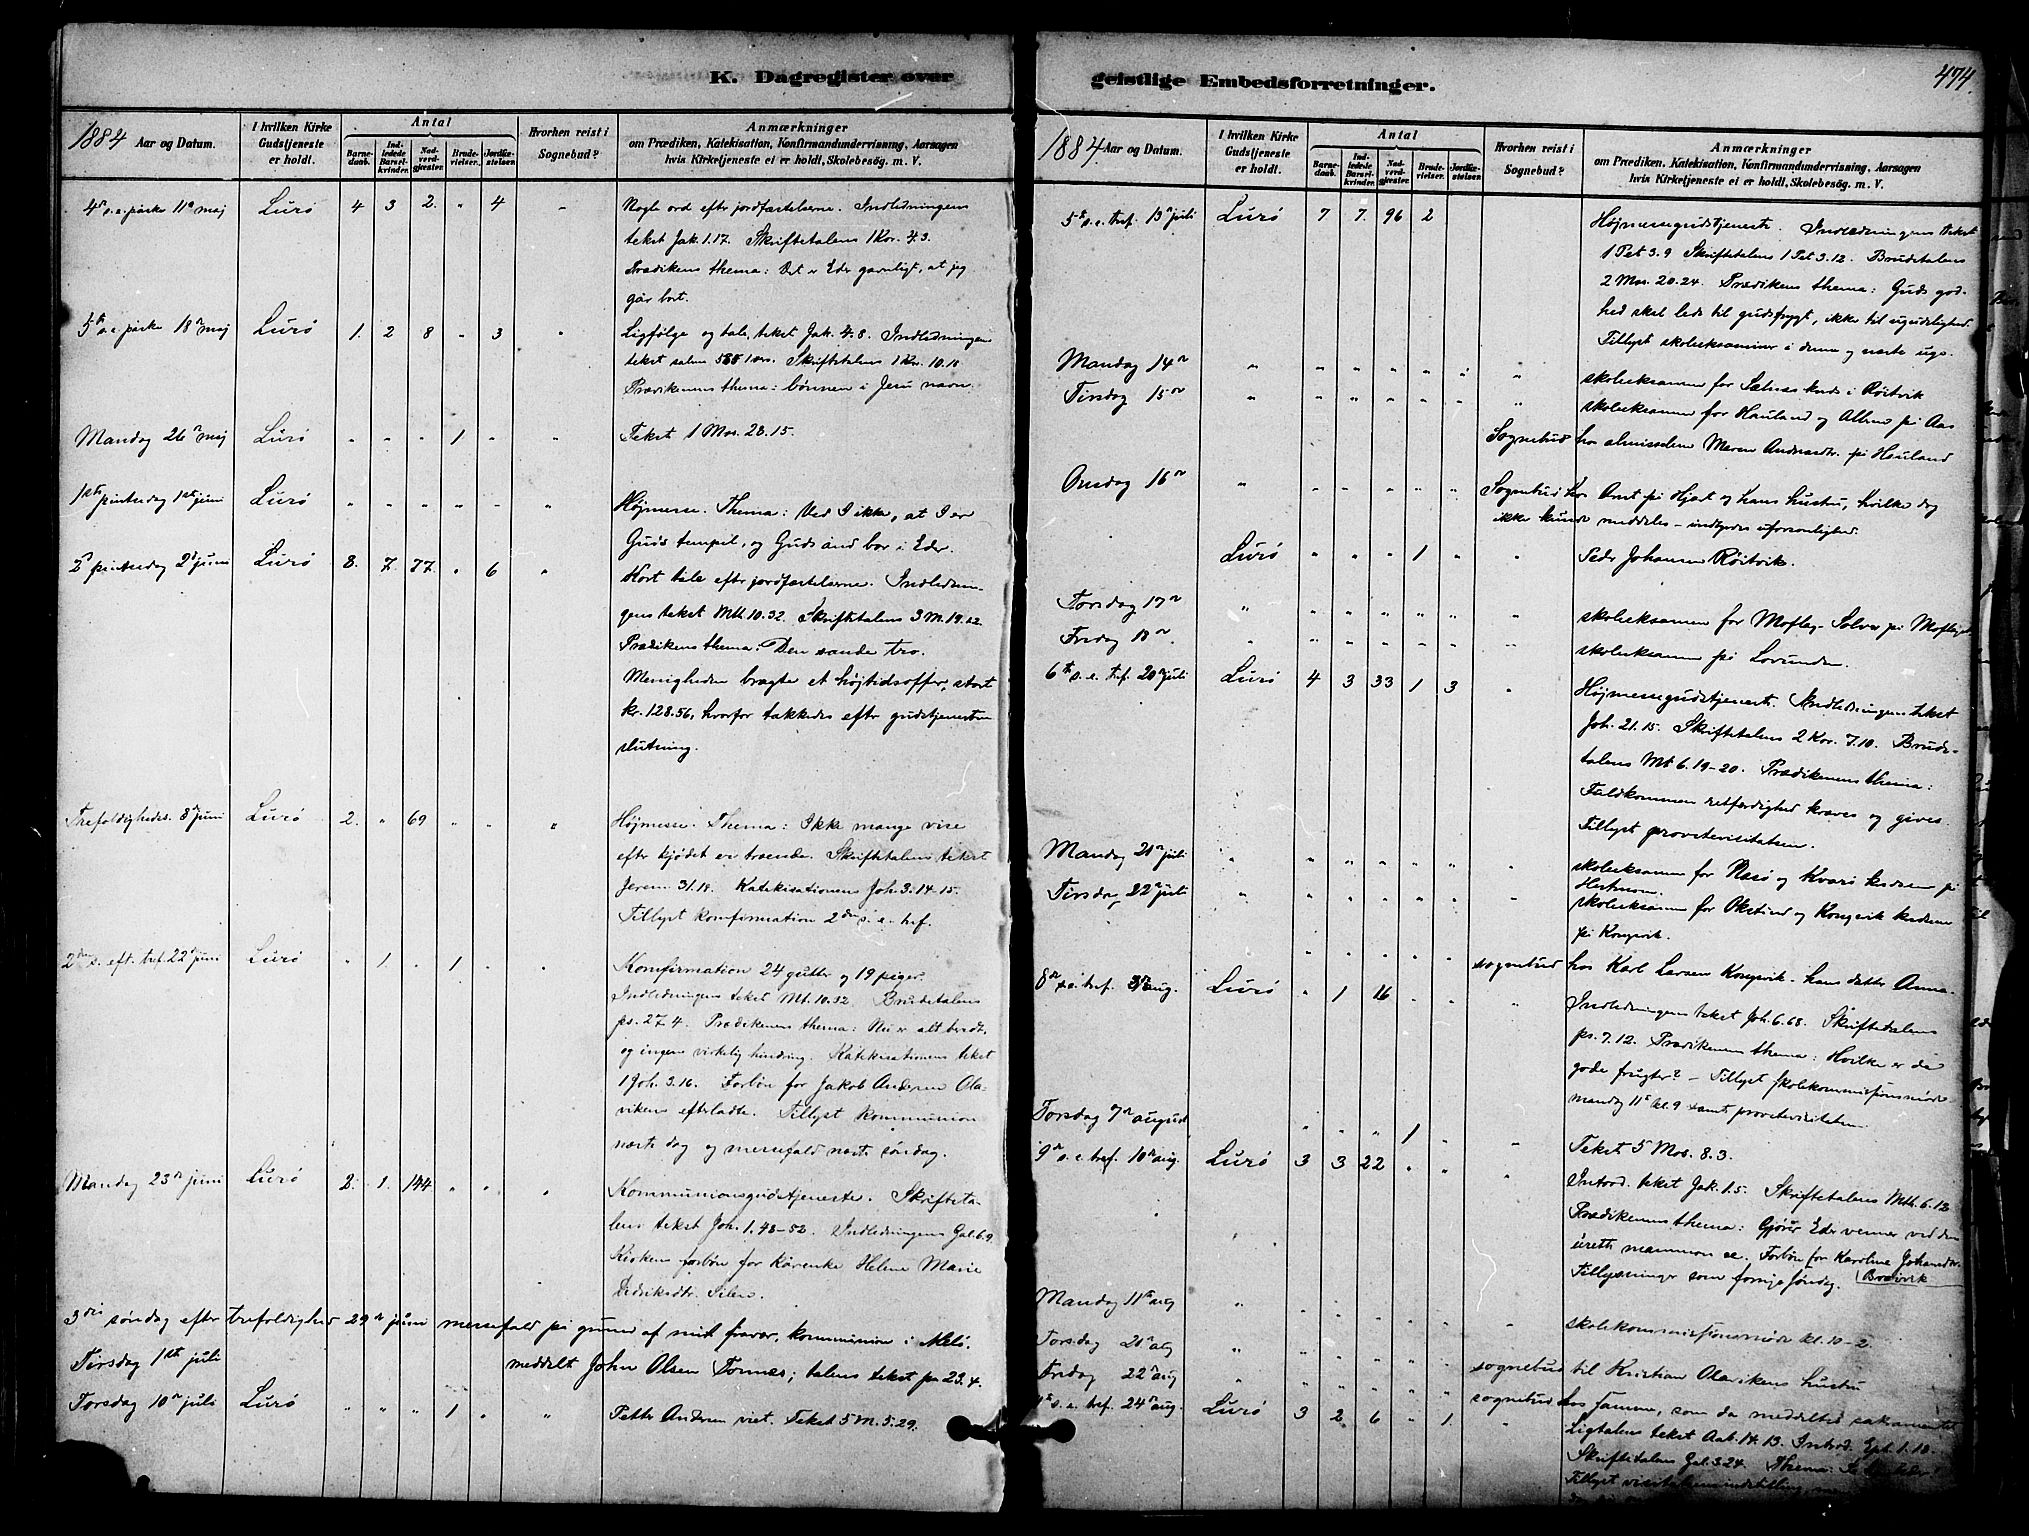 K. Dagregister over
1884 Aar og Datum.
I hvilken Kirke Gudstjeneste er holdt.
Antal
Barnedaab.
Indledede Barselkvinder.
Nadverdgjæster.
Brudevielser.
Jordfæstelser.
Hvorhen reist i Sognebud?
Anmærkninger
om Prædiken, Katekisation, Konfirmandundervisning, Aarsagen
hvis Kirketjeneste ei er holdt, Skolebesøg. m. V.
4de s. e. påske 11te maj Lurö 4 3 2. " 4 " Nogle ord efter jordfæstelserne. Indledningens
tekst Jak. 1.17. Skriftetalens 1 Kor. 4.3.
Prædikens thema: Det er Eder gavnligt, at jeg
går bort.
5te s. e. påske 18de maj Lurö 1. 2 8 " 3 " Ligfölge og tale, tekst Jak. 4.8. Indledningens
tekst salm. Skriftetalens 1 Kor. 10.
Prædikens thema: bönnen i Jesu navn.
Mandag 26de maj Lurö " " " 1 " " Tekst 1 Mos. 28.15.
1ste pintsedag 1ste juni Lurö " " " " " " Højmesse. Thema: Ved I ikke, at I er
Guds tempel, og Guds ånd bor i Eder.
2den pintsedag 2den juni Lurö 8. 7. 77. " 6 " Kort tale efter jordfæstelserne. Indlednin-
gens tekst Mth. 10.32. Skriftetalens 3 M. 19.
Prædikens thema: Den sande tro.
Menigheden bragte et højtidsoffer, stort
kr. 128.56, hvorfor takkedes efter gudstjenestens
slutning.
Trefoldigheds. 8de juni Lurö 2. " 69 " " " Højmesse. Thema: Ikke mange vise
efter kjödet er troende. Skriftetalens tekst
Jerem. 31.18. Katekisationens Joh. 3.14-15.
Tillyst konfirmation 2den s. e. tref.
2den s. eft. tref. 22de juni Lurö " 1. " 1 " " Konfirmation 24 gutter og 19 piger.
Indledningens tekst Mt. 10.32 Brudetalens
ps. 27.4. Prædikenens thema: Nu er alt beredt,
og ingen virkelig hindring. Katekisationens tekst
1 Joh. 3.16. Forbön for Jakob Andersen Ola-
vikens efterladte. Tillyst kommunion
næste dag og messefald næste söndag.
Mandag 23de juni Lurö 2. 1. 144 " " " Kommunionsgudstjeneste. Skrifteta-
lens tekst Joh. 1.48-52. Indledningens Gal. 6.9
Kirkens forbön for Helene Marie
Didriksdtr.
3die söndag efter trefoldighed 29de juni messefald på grund af mit fravær, kommunion i Melö.
Tirsdag 1ste juli meddelt John Olsen Tonnes; talens tekst ps 23.4.
Torsdag 10de juli Lurö " " " 1 " " Petter Andersen viet. Tekst 5 M. 5.29.
geistlige Embedsforretninger.
474.
1884. Aar og Datum.
I hvilken Kirke Gudstjeneste er holdt.
Antal
Barnedaab.
Indledede Barselkvinder.
Nadverdgjæster.
Brudevielser.
Jordfæstelser.
Hvorhen reist i Sognebud?
Anmærkninger
om Prædiken, Katekisation, Konfirmandundervisning, Aarsagen
hvis Kirketjeneste ei er holdt, Skolebesøg. m. V.
5te s. e. tref. 13de juli Lurö 7 7. 96 2 Højmessegudstjeneste. Indledningens tekst
1 Pet 3.9 Skriftetalens 1 Pet 3.12. Brudetalens
2 Mos. 20.24. Prædikens thema: Guds god-
hed skal lede til gudsfrygt, ikke til ugudelighed.
Tillyst skoleeksaminer i denne og næste uge.
Mandag 14de " " " " " " " skoleeksamen for kreds i Röitvik
Tirsdag 15de " " " " " " " skoleeksamen for Hauland og på Aas
Sognebud hos almisselem Maren Andreasdtr. på Hauland
Onsdag 16de " " " " " " Sognebud hos Arnt på Hjart og hans hustru, hvilke dog
ikke kunde meddeles - indbyrdes uforsonlighed.
Lurö " " " 1 " " Peder Johansen Röitvik.
Torsdag 17de " " " " " " " skoleeksamen for Moflag-Solvær på Moflag
Fredag 18de " " " " " " " skoleeksamen på Lovunden.
6te s. e. tref. 20de juli Lurö 4 3 33 1 3 " Højmessegudstjeneste. Indledningens tekst
Joh. 21.15. Skriftetalens 2 Kor. 7.10. Brude-
talens Mt. 6.19-20. Prædikenens thema:
Fuldkommen retfærdighed kræves og gives.
Tillyst provstevisitatsen.
Mandag 21de juli " " " " " " " skoleeksamen for Nesö og Kvarö kredsen på
Hestmon.
Tirsdag 22de juli " " " " " " " skoleeksamen for Okstind og Kongsvik kredsene
på Kongsvik.
" " " " " sognebud hos Karl Larsen Kongsvik - hans datter Anna.
8de s. e. tref. 3de aug. Lurö " 1 16 " " " Indledningens tekst Joh. 6.68. Skriftetalens
ps. 7.12. Prædikenens thema: Hvilke er de
gode frugter? - Tillyst skolekommissionsmöde
mandag 11te kl. 9 samt provstevisitatsen.
Torsdag 7de august " " " 1 " " Tekst 5 Mos. 8.3.
9de s. e. tref. 10de aug. Lurö 3 3 22 " " " Introd. tekst Jak. 1.5. Skriftetalens Mth. 6.12
Prædikenens thema: Gjører Eder venner ved den
urette mammon Forbön for Karoline Johansdtr.
Tillysninger som forrige söndag. Bratvik
Mandag 11te aug " " " " " " " skolekommissionsmöde kl. 10-2.
Torsdag 21de aug " " " " " " sognebud til Kristian Olavikens hustru
Fredag 22de aug " " " " " " sognebud hos samme, som da meddeltes sakramentet
11te s. e. tref. 24de aug. Lurö 3 2 6 " 1 " Ligtalens tekst Aab. 14.13. Introd. Eph. 1.18.
Skriftetalens Gal. 3.24. Thema:
Tillyst visitatsens indstilling,